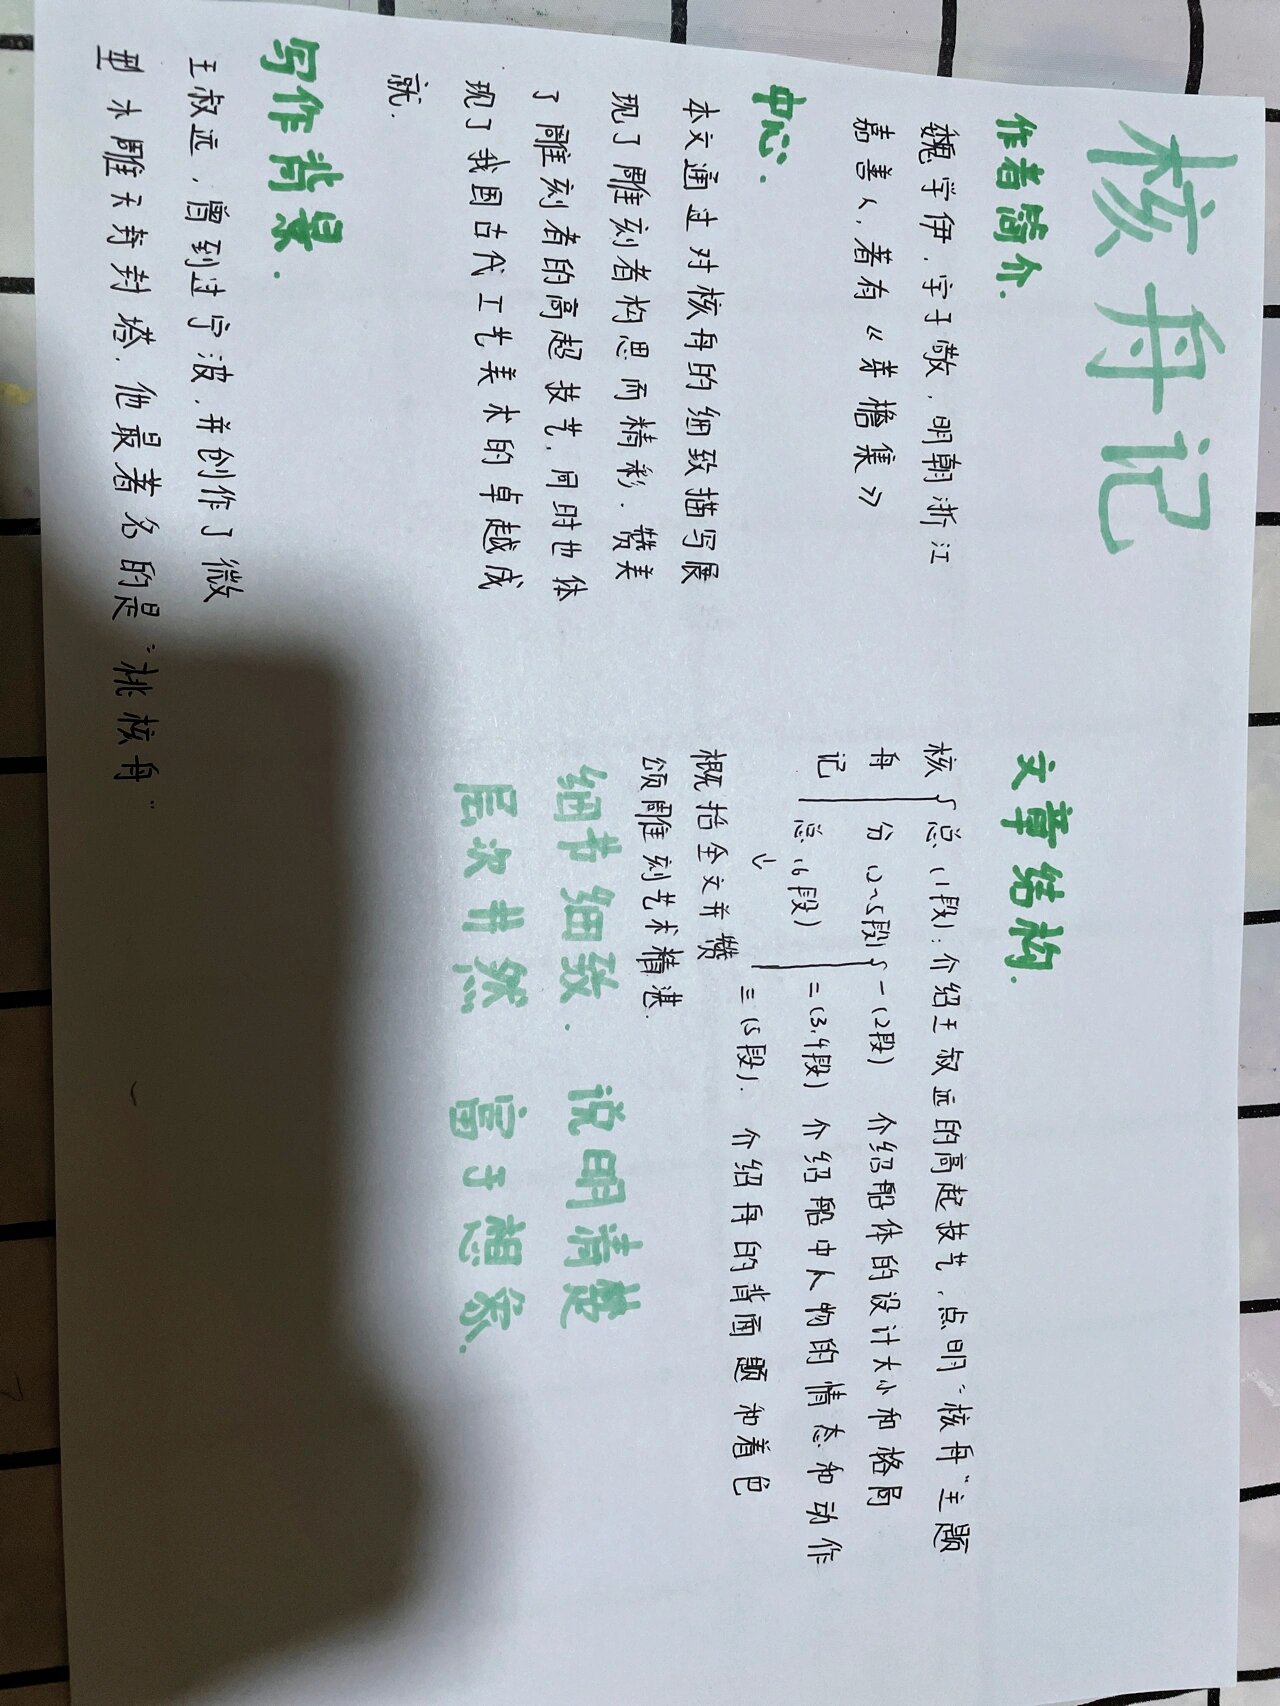 核舟记
作者简介.
魏学伊.字子敬.明朝浙江
嘉善人.著有《茅檐集》
中心.
本文通过对核舟的细致描写展
现了雕刻者构思而精彩.赞美
了雕刻者的高超技艺.同时也体
现了我国古代工艺美术的卓越成
就.
写作背景.
王叔远.曾到过宁波.并创作了微
型木雕天封塔.他最著名的是“桃核舟”
文章结构.
核舟记
总(1段):介绍王叔远的高超技艺.点明“核舟”主题
分(2~5段)
一(2段) 介绍船体的设计大小和格局
二(3.4段) 介绍船中人物的情态和动作
三(5段). 介绍舟的背面题和着色
总(6段)
↓
概括全文并赞
颂雕刻艺术精湛.
细节细致. 说明清楚
层次井然 富于想象.